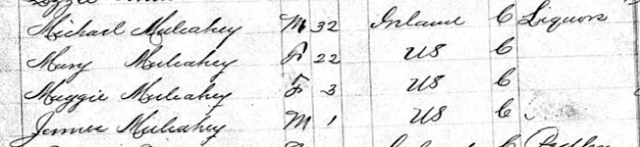 Michael Mulcahey M 32 Ireland C Liquors
Mary Mulcahey F 22 US C
Maggie Mulcahey F 3 US C
Mulcahey M 1 US C